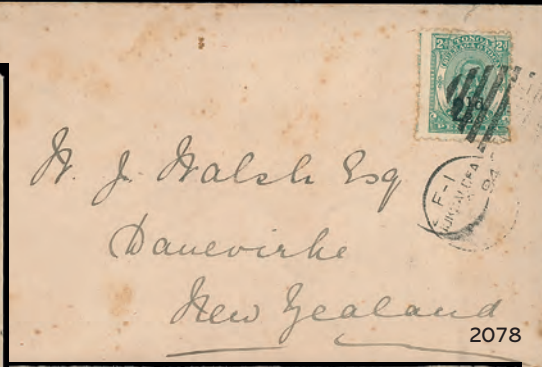 2d TONGA 2d
2½d.
F-1
94
W. J. Walsh Esq
Danevirke
New Zealand
2078